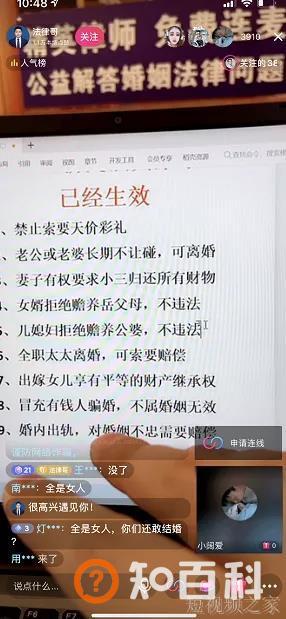 10:48
法律哥
关注
3910
律师 免费连麦
人气榜
关注的
公益解答婚姻法律问题
审阅 视图 章节 开发工具 会员专享 稻壳资源
已经生效
、禁止索要天价彩礼
、老公或老婆长期不让碰，可离婚
、妻子有权要求小三归还所有财物
、女婿拒绝赡养岳父母，不违法
、儿媳妇拒绝赡养公婆，不违法
、全职太太离婚，可索要赔偿
7、出嫁女儿享有平等的财产继承权
8、冒充有钱人骗婚，不属婚姻无效
9、婚内出轨，对婚姻不忠需要赔偿
谨防网络诈骗
申请连线
21 法律哥 王***：没了
南***：全是女人
很高兴遇见你！
3 灯***：全是女人，你们还敢结婚
？
用*** 来了
小阔爱
0
说点什么...
知百科
短视频之家
F6
F7